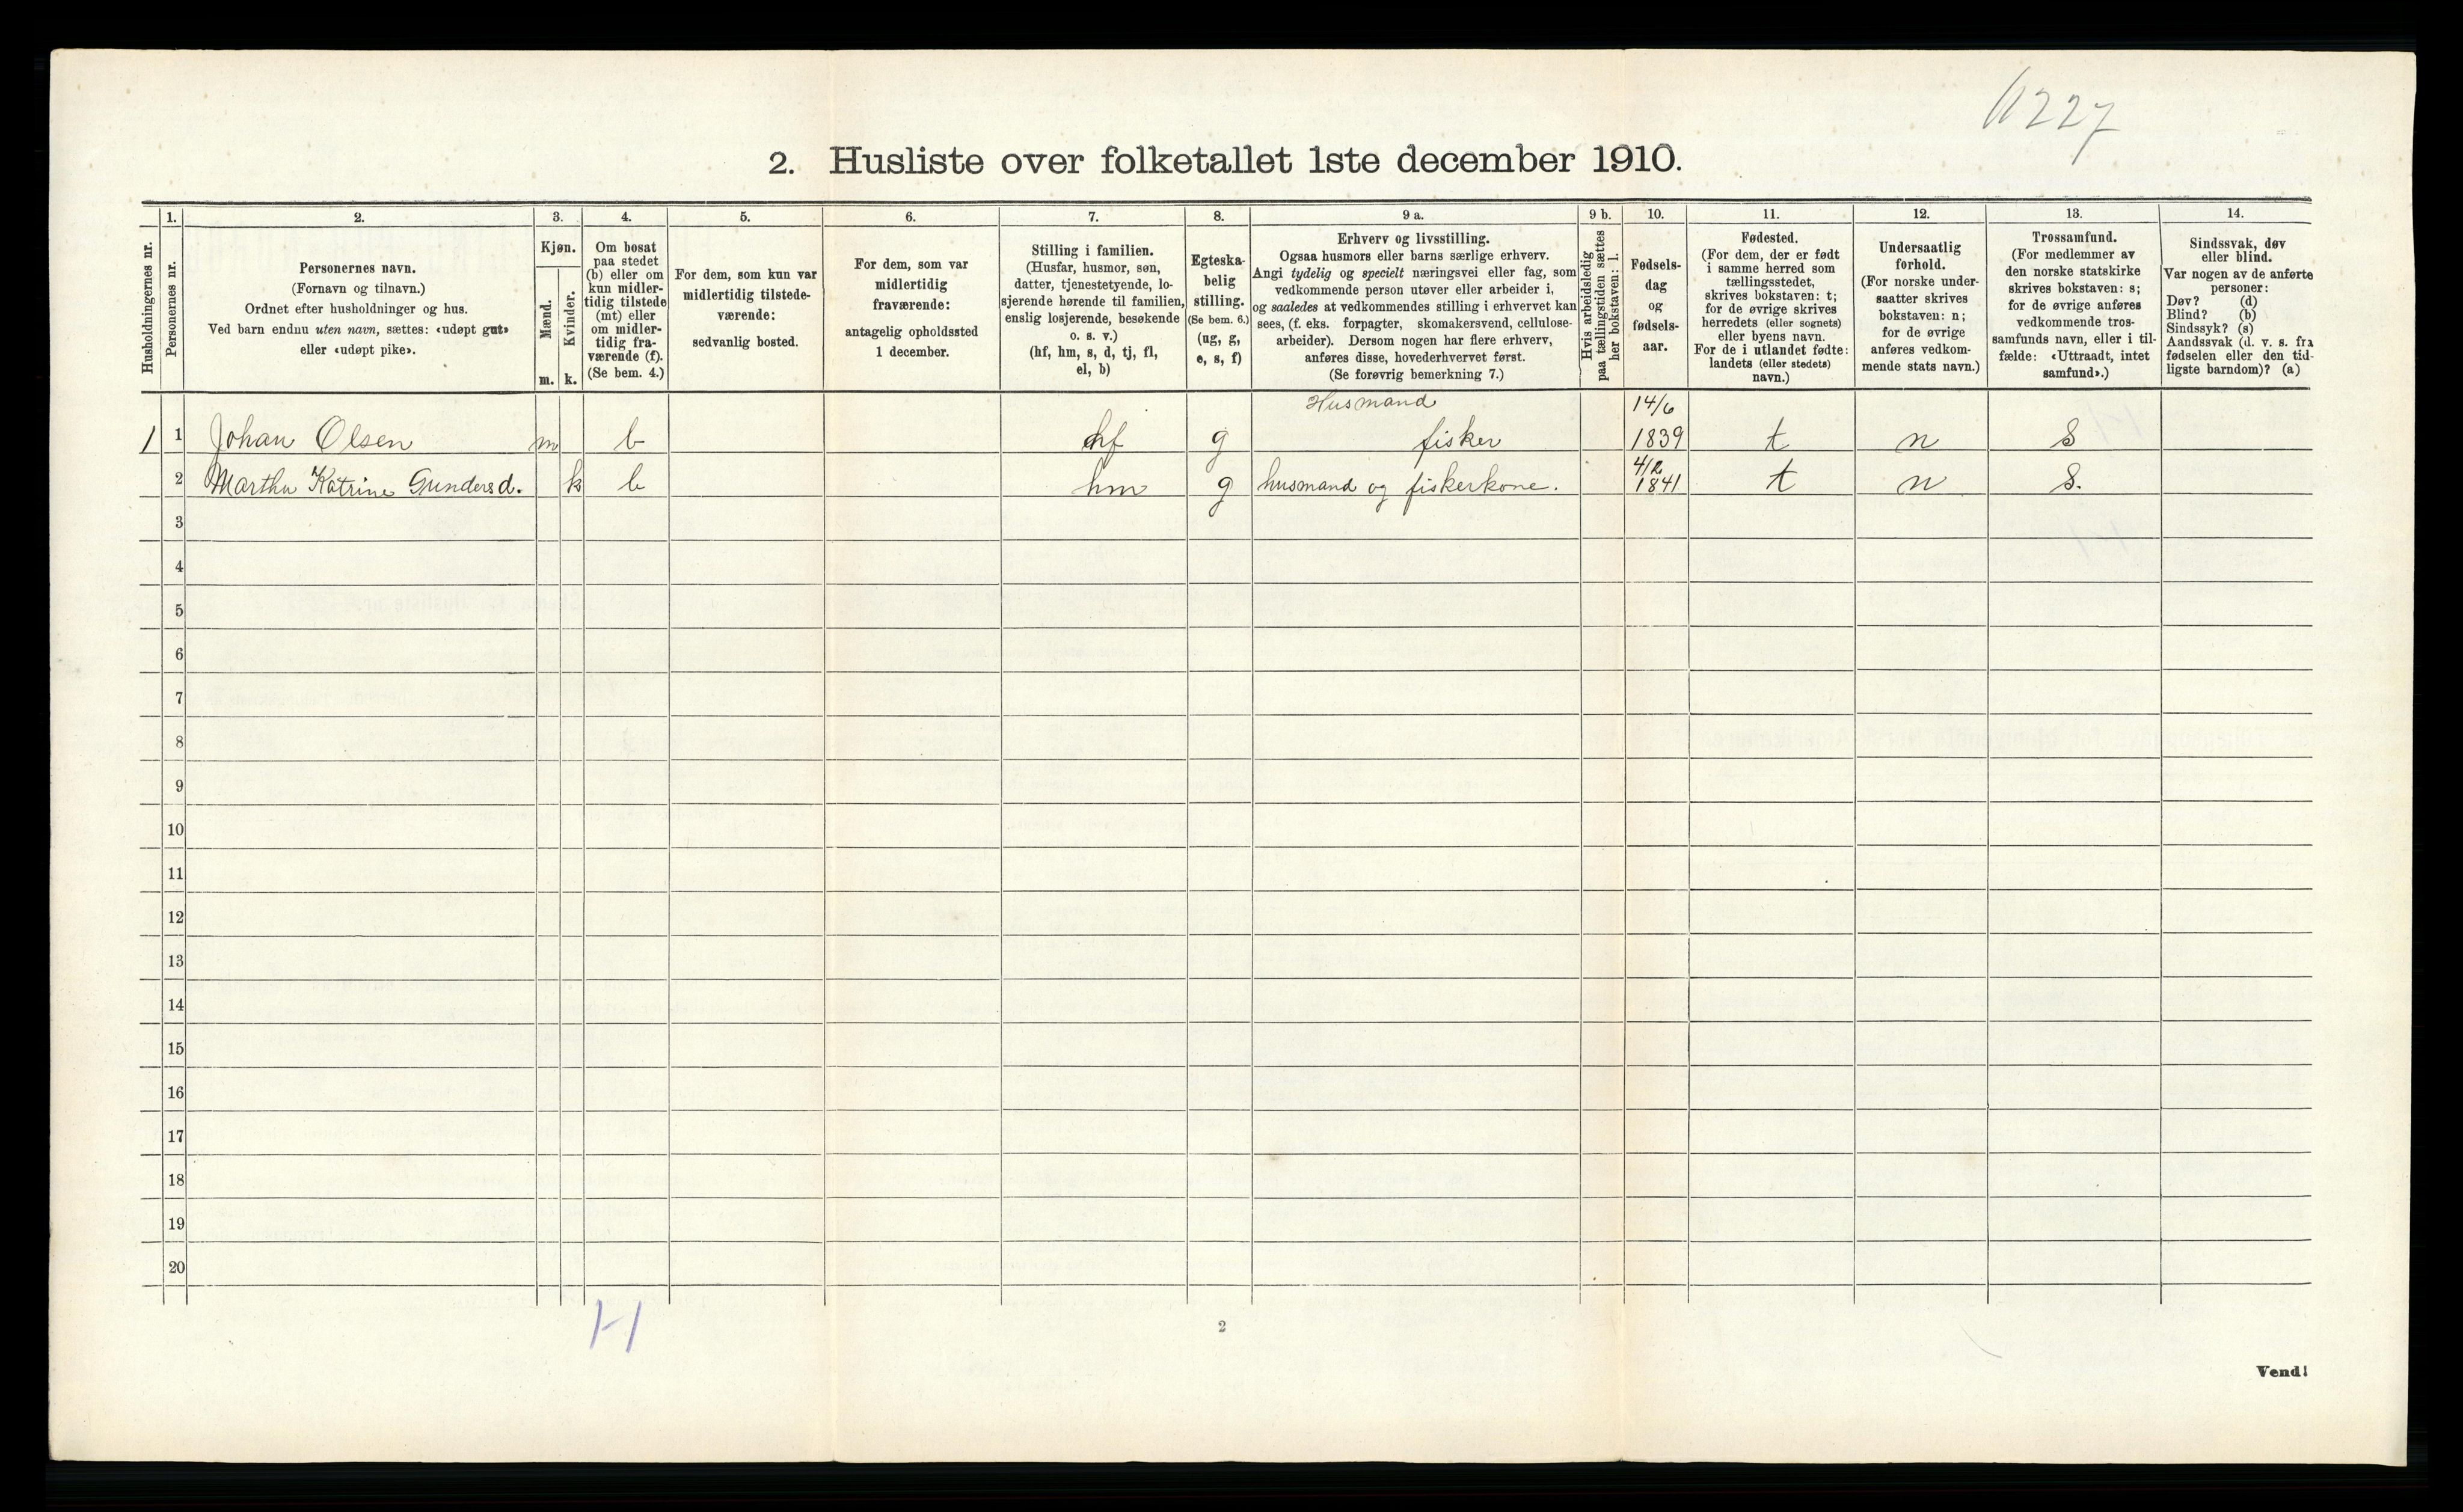 6227
2. Husliste over folketallet 1ste december 1910.
Husholdningernes nr.
1.
Personernes nr.
2.
Personernes navn.
(Fornavn og tilnavn.)
Ordnet efter husholdninger og hus.
Ved barn endnu uten navn, sættes: «udøpt gut»
eller «udøpt pike».
3.
Kjøn.
Mænd.
Kvinder.
m. k.
4.
Om bosat
paa stedet
(b) eller om
kun midler-
tidig tilstede
(mt) eller
om midler-
tidig fra-
værende (f).
(Se bem. 4.)
5.
For dem, som kun var
midlertidig tilstede-
værende:
sedvanlig bosted.
6.
For dem, som var
midlertidig
fraværende:
antagelig opholdssted
1 december.
7.
Stilling i familien.
(Husfar, husmor, søn,
datter, tjenestetyende, lo-
sjerende hørende til familien,
enslig losjerende, besøkende
o. s. v.)
(hf, hm, s, d, tj, fl,
el, b)
8.
Egteska-
belig
stilling.
(Se bem. 6.)
(ug, g,
e, s, f)
9 a.
Erhverv og livsstilling.
Ogsaa husmors eller barns særlige erhverv.
Angi tydelig og specielt næringsvei eller fag, som
vedkommende person utøver eller arbeider i,
og saaledes at vedkommendes stilling i erhvervet kan
sees, (f. eks. forpagter, skomakersvend, cellulose-
arbeider). Dersom nogen har flere erhverv,
anføres disse, hovederhvervet først.
(Se forøvrig bemerkning 7.)
9 b.
Hvis arbeidsledig
paa tællingstiden sættes
her bokstaven: l.
10.
Fødsels-
dag
og
fødsels-
aar.
11.
Fødested.
(For dem, der er født
i samme herred som
tællingsstedet,
skrives bokstaven: t;
for de øvrige skrives
herredets (eller sognets)
eller byens navn.
For de i utlandet fødte:
landets (eller stedets)
navn.)
12.
Undersaatlig
forhold.
(For norske under-
saatter skrives
bokstaven: n;
for de øvrige
anføres vedkom-
mende stats navn.)
13.
Trossamfund.
(For medlemmer av
den norske statskirke
skrives bokstaven: s;
for de øvrige anføres
vedkommende tros-
samfunds navn, eller i til-
fælde: «Uttraadt, intet
samfund».)
14.
Sindssvak, døv
eller blind.
Var nogen av de anførte
personer:
Døv? (d)
Blind? (b)
Sindssyk? (s)
Aandssvak (d. v. s. fra
fødselen eller den tid-
ligste barndom)? (a)
Husmand 14/6
1 1 Johan Olsen m b hf g fisker 1839 t n S
4/2
2 Martha Katrine Gundersd. k b hm g husmand og fiskerkone. 1841 t n S.
3
4
5
6
7
8
9
10
11
12
13
14
15
16
17
18
19
20
1-1
2
Vend!